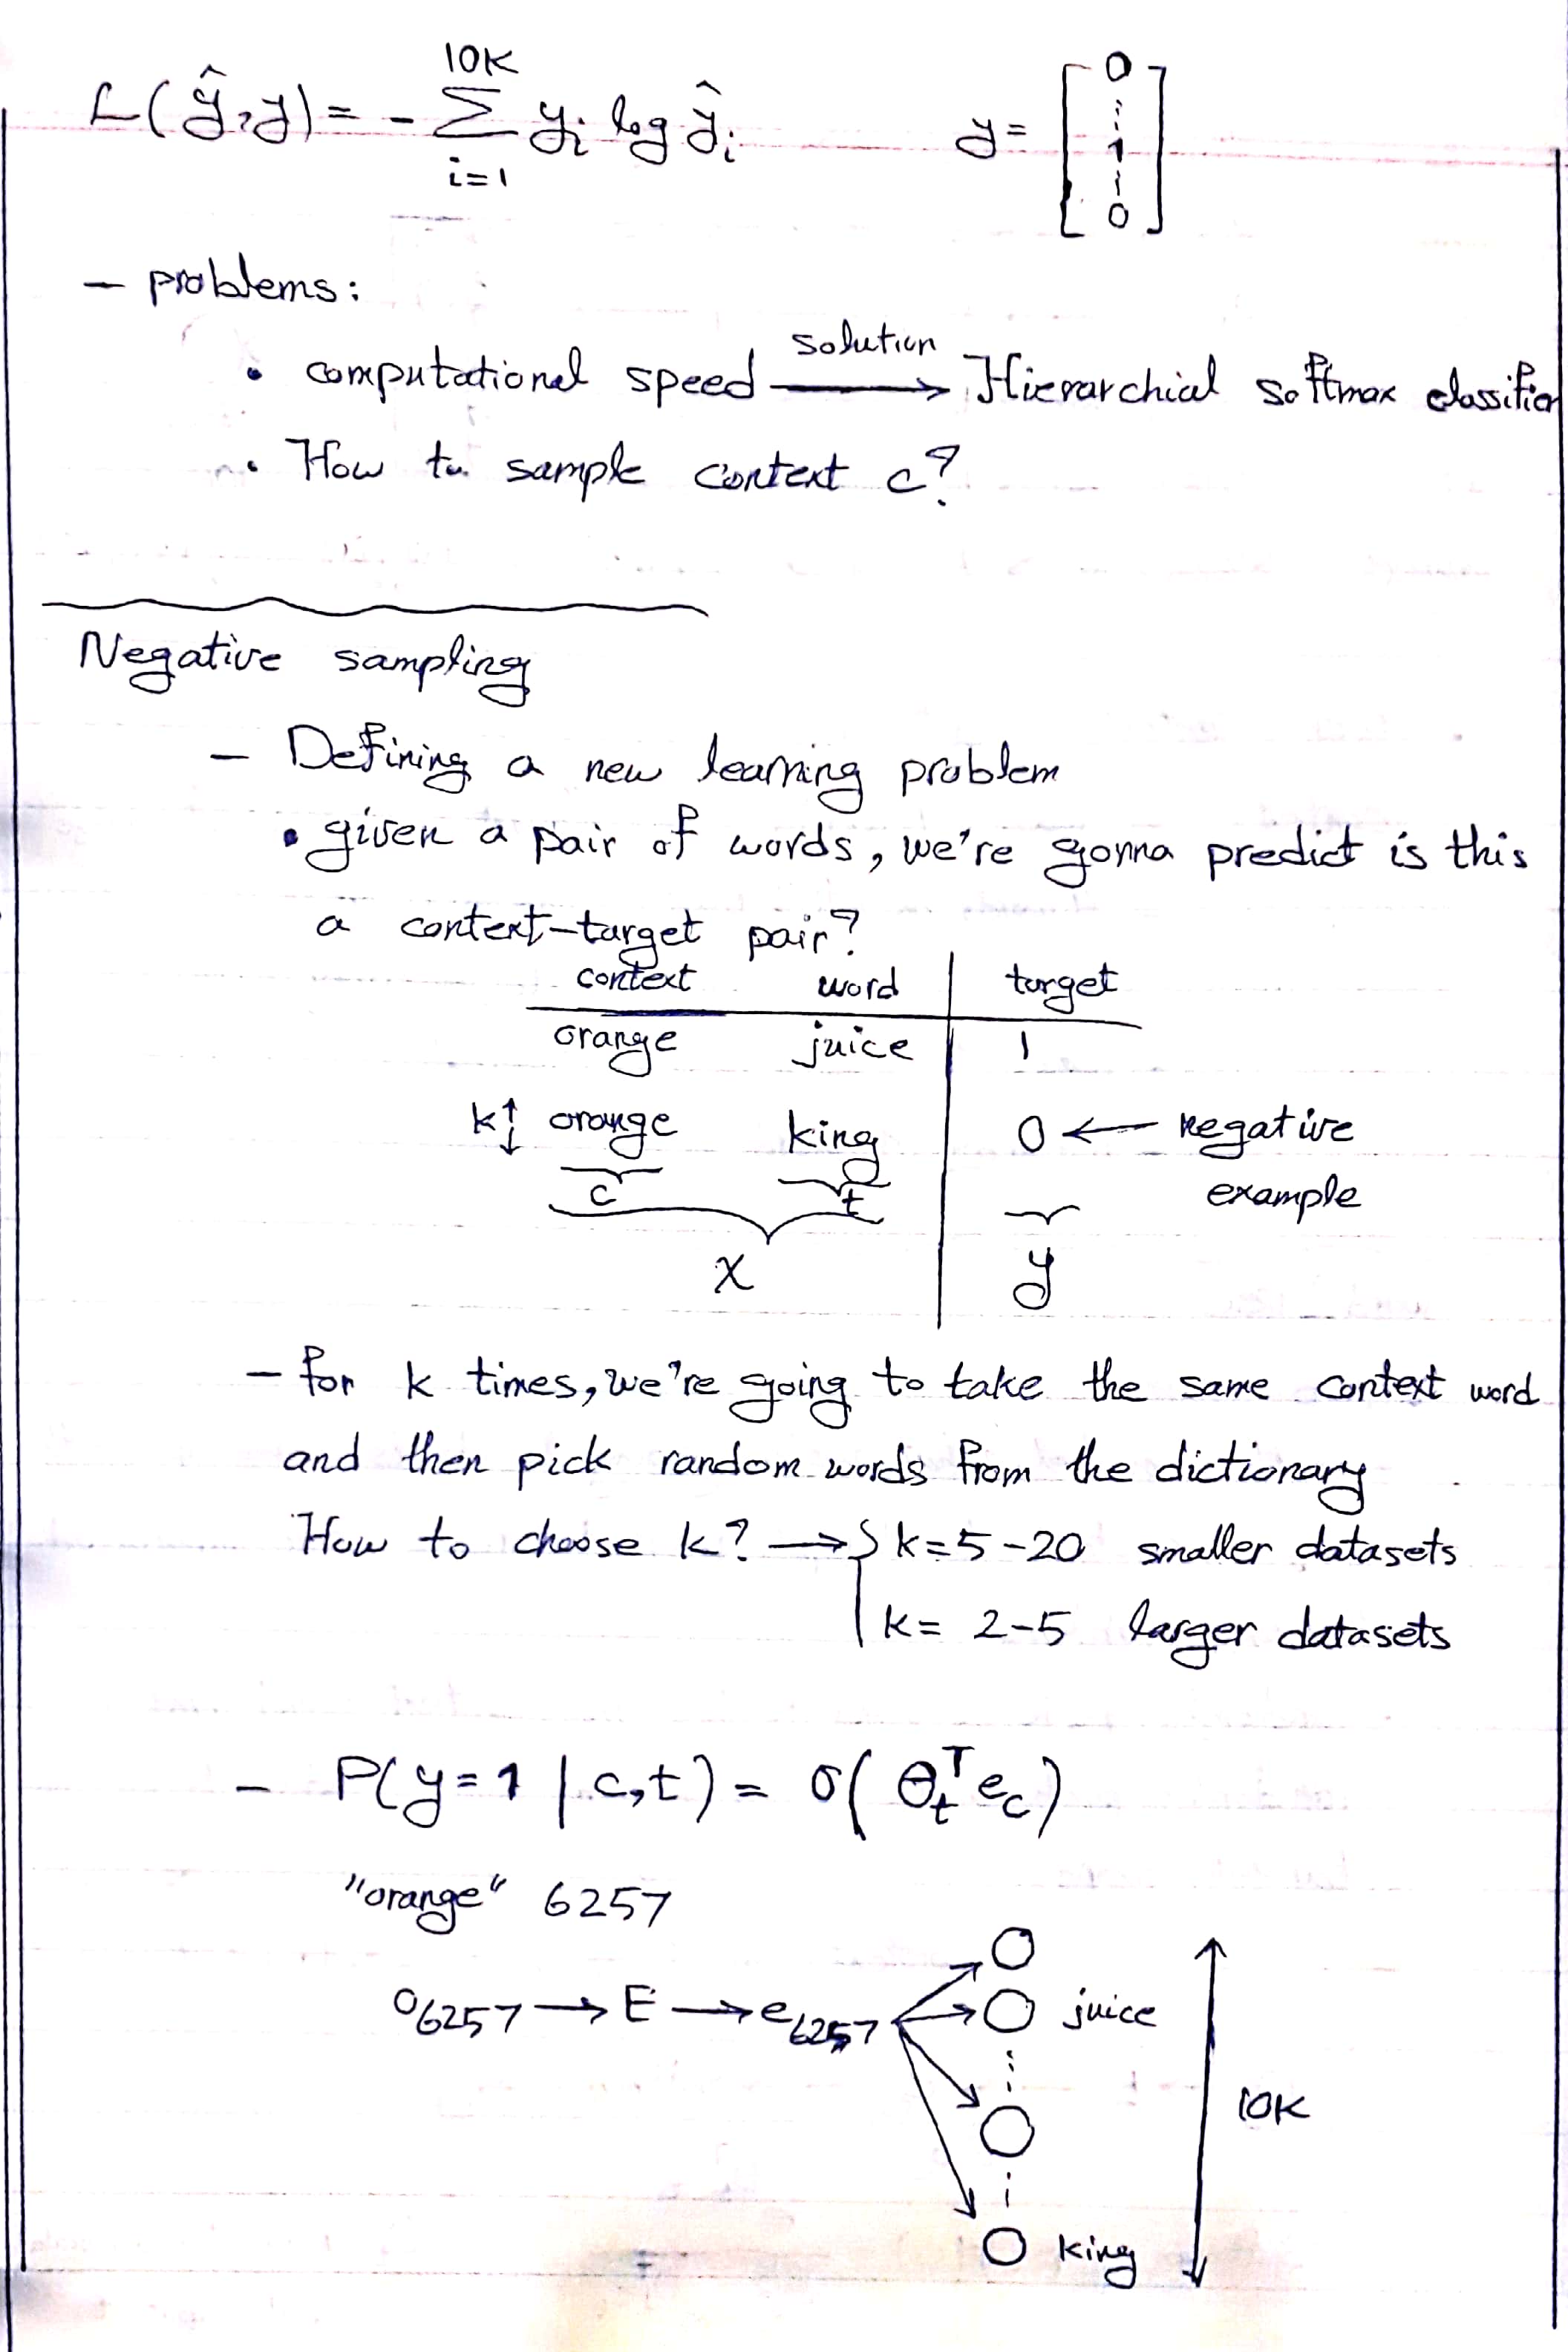 L(ŷ,y) = - 10K Σ i=1 yi log ŷi y = [0 ⋮ 1 ⋮ 0]
– problems:
• computational speed solution → Hierarchial softmax classifier
• How to sample context c?
Negative sampling
– Defining a new learning problem
• given a pair of words, we're gonna predict is this
a context-target pair?
context word target
orange juice 1
k↕ orange king 0 ← negative
c t example
x y
– for k times, we're going to take the same context word
and then pick random words from the dictionary
How to choose k? → { k=5-20 smaller datasets
k= 2-5 larger datasets
– P(y=1 | c,t) = σ(θₜᵀ e_c)
"orange" 6257
o₆₂₅₇ → E → e₆₂₅₇ juice
10K
king